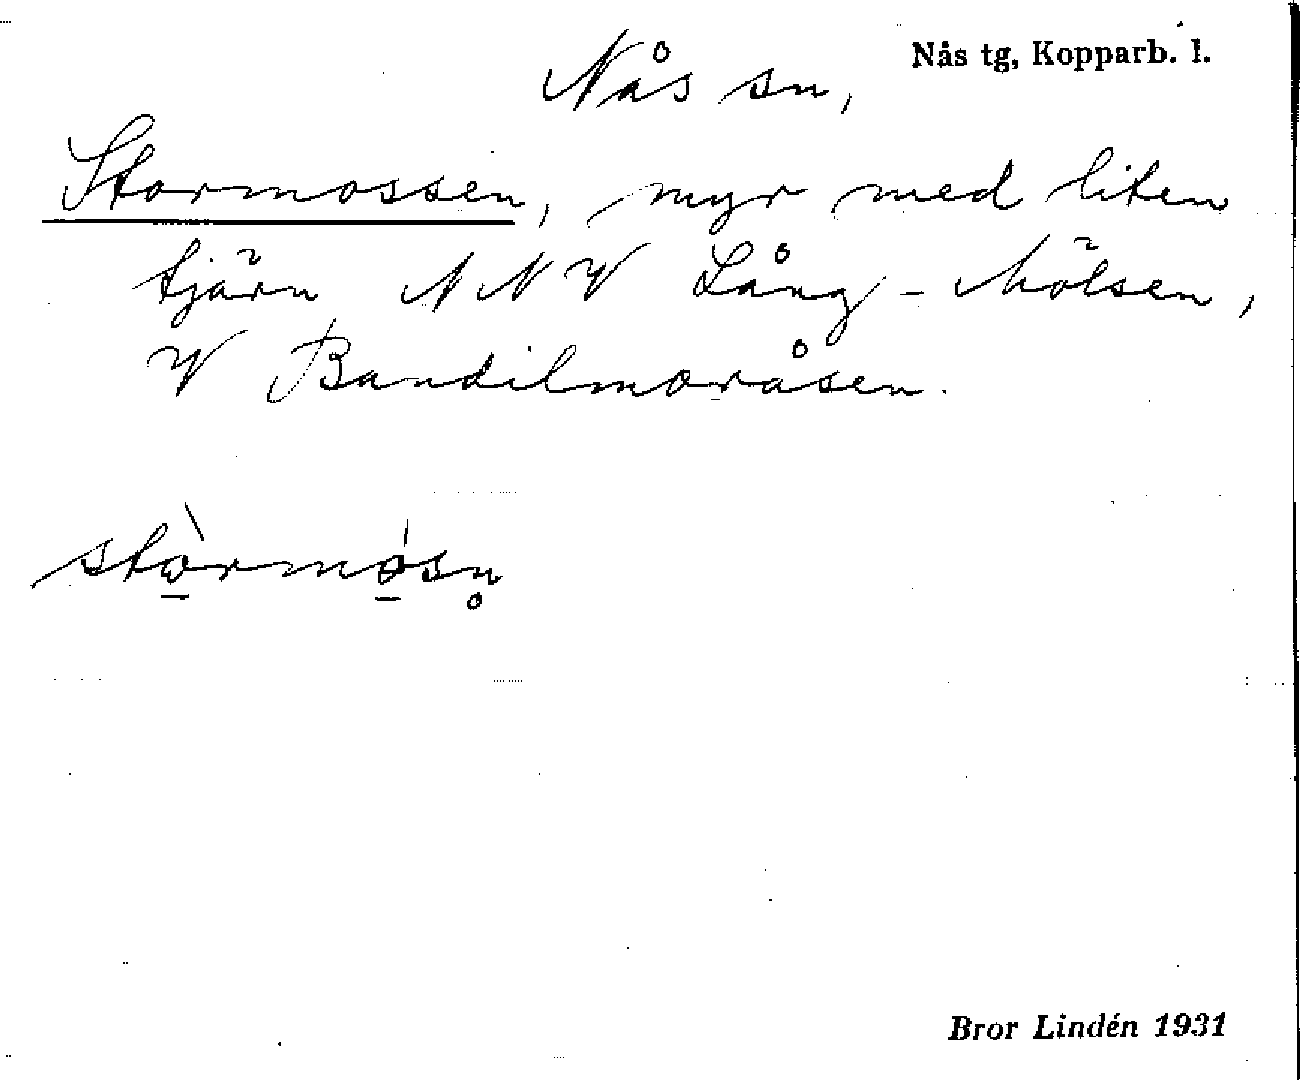 Nås sn,
Nås tg, Kopparb. l.
Stormossen, myr med liten
tjärn NNV Lång-Mölsen,
V Bandilmoråsen.
stòrmøsn̥
Bror Lindén 1931